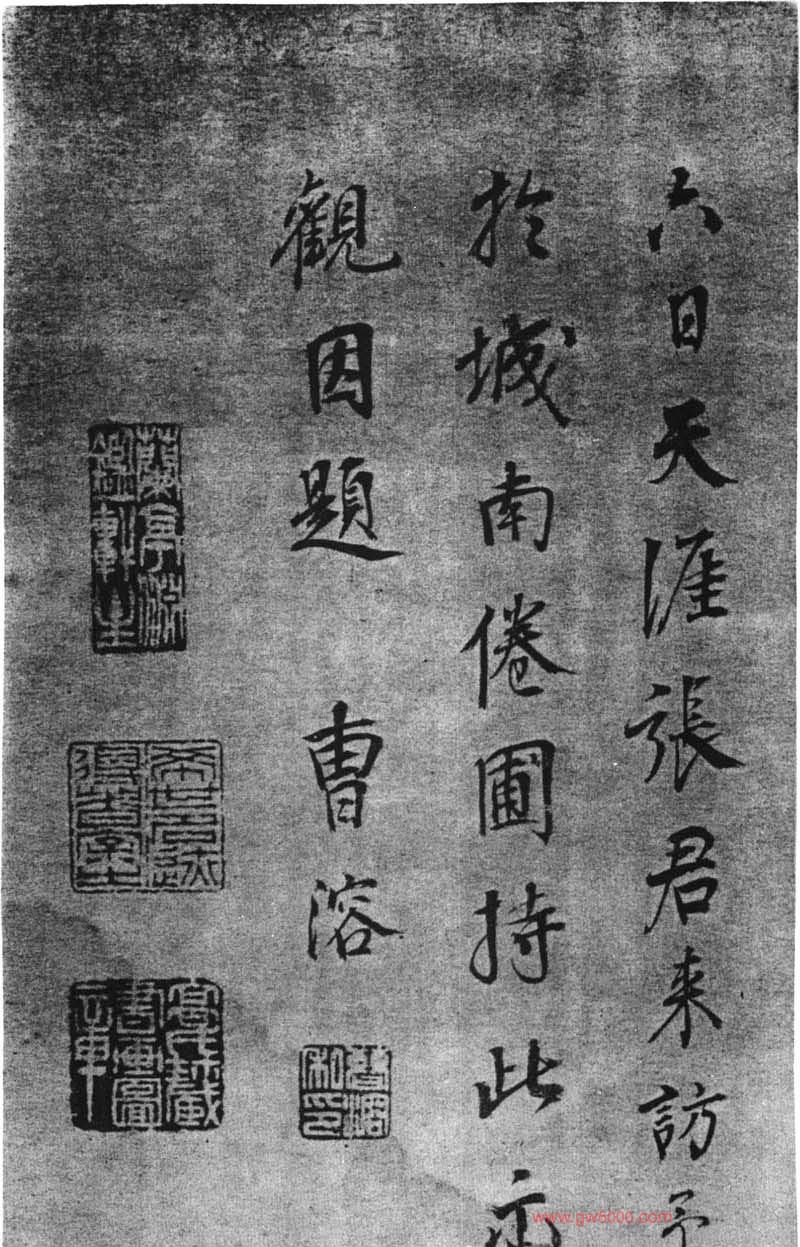 六日天涯張君来訪予
於城南倦圃持此示
觀因題 曹溶
曹溶私印
www.gw5000.com